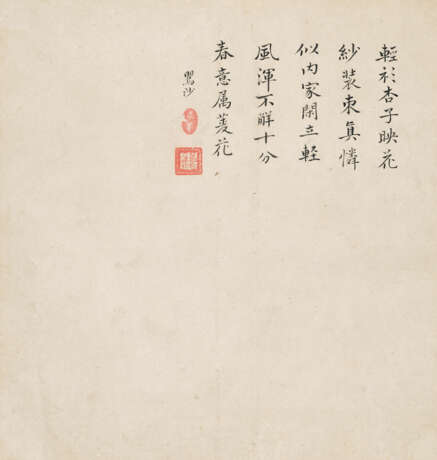 輕衫杏子映花
紗裝束眞憐
似内家閑立軽
風渾不解十分
春意属菱花